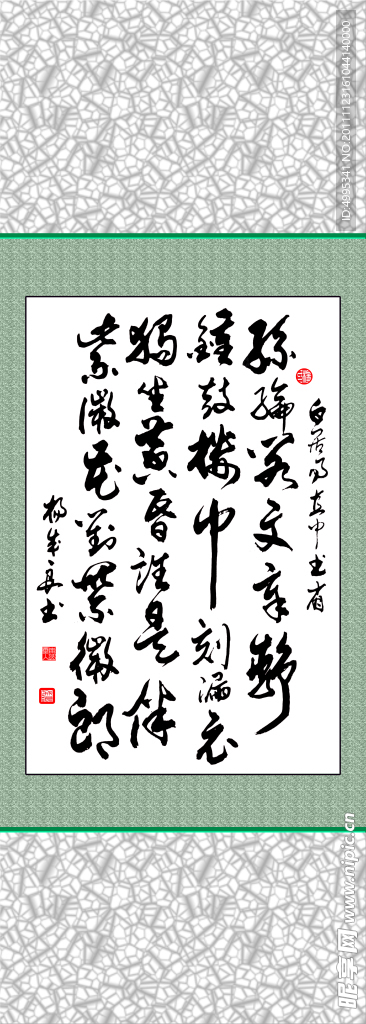 白居易直中书省
絲綸阁下文章静
鐘鼓樓中刻漏长
獨坐黄昏誰是伴
紫薇花對紫微郎
书
ID:4995341 NO:20111123161044140000
昵享网 www.nipic.cn